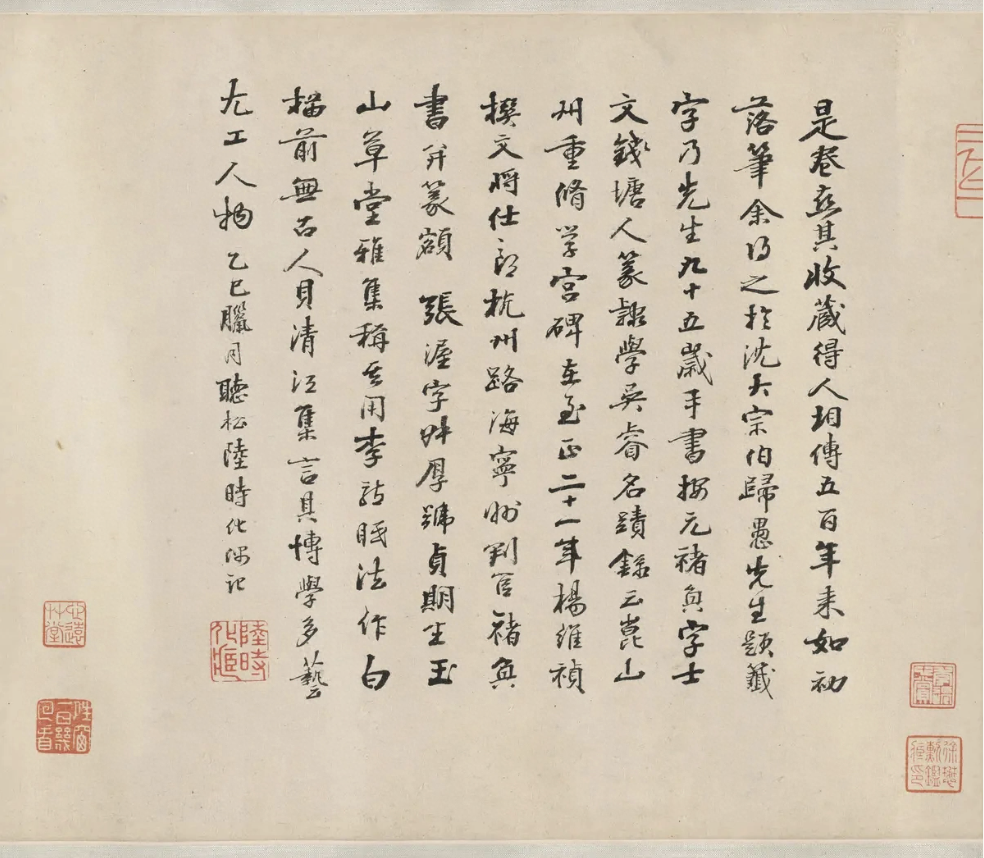 是卷並其收藏得人相傳五百年来如初
落筆余得之於沈大宗伯歸愚先生題籤
字乃先生九十五歲手書按元褚奐字士
文錢塘人篆隷學吳睿名蹟錄云崑山
州重脩学宫碑在至正二十一年楊維禎
撰文将仕郎杭州路海寧州判官褚奐
書并篆額 張渥字叔厚號貞期生玉
山草堂雅集稱其用李龍眠法作白
描前無古人貝清江集言其博學多藝
尤工人物 乙巳臘月聽松陸時化偶記
陸時化印